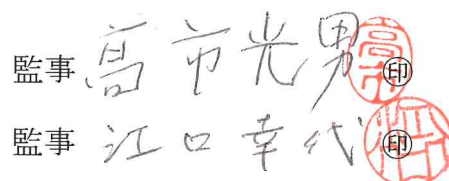 監事 髙市光男 ㊞
監事 江口幸代 ㊞